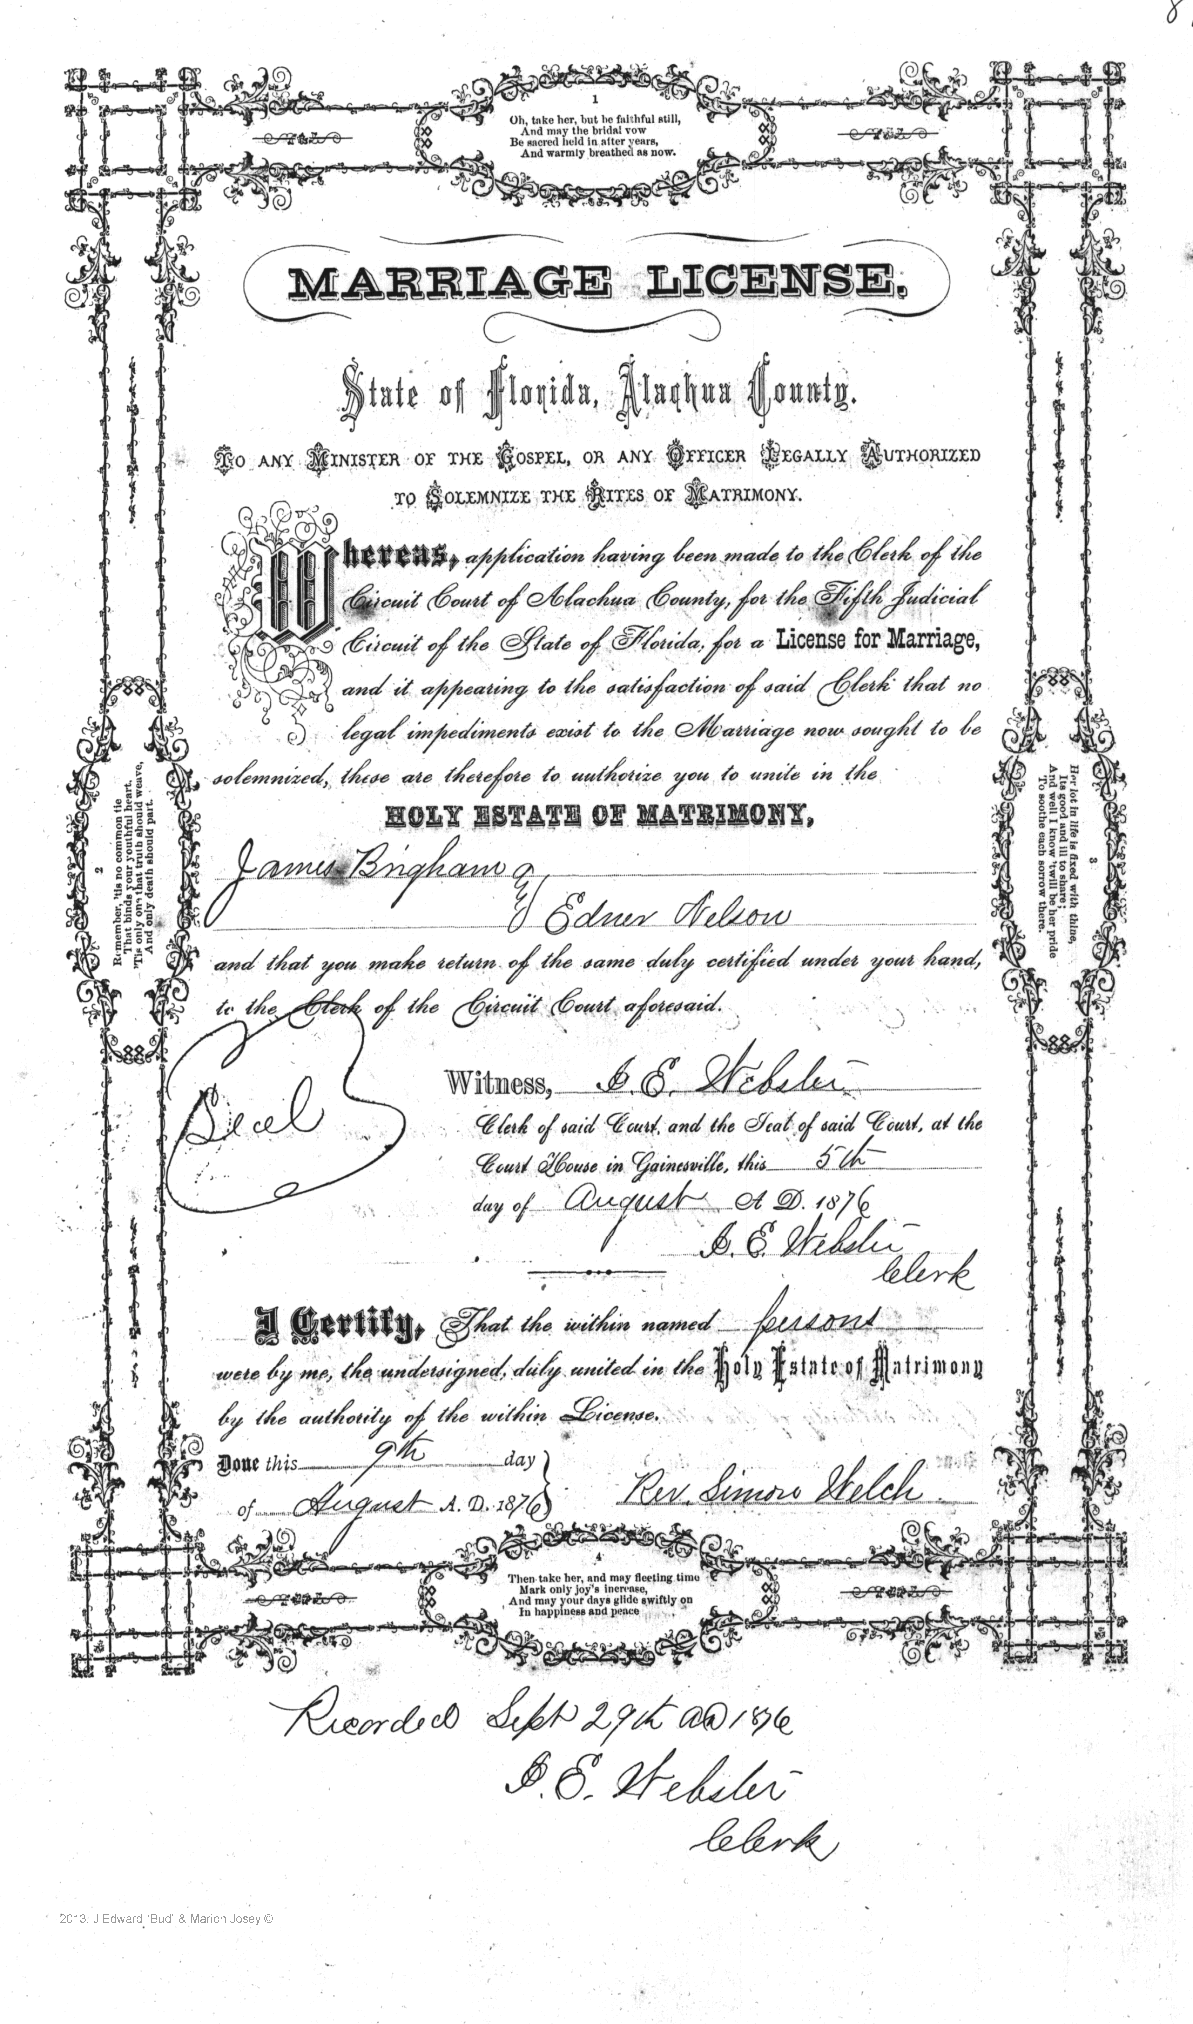 1
Oh, take her, but be faithful still,
And may the bridal vow
Be sacred held in after years,
And warmly breathed as now.
MARRIAGE LICENSE.
State of Florida, Alachua County.
TO ANY MINISTER OF THE GOSPEL, OR ANY OFFICER LEGALLY AUTHORIZED
TO SOLEMNIZE THE RITES OF MATRIMONY.
Whereas, application having been made to the Clerk of the
Circuit Court of Alachua County, for the Fifth Judicial
Circuit of the State of Florida, for a License for Marriage,
and it appearing to the satisfaction of said Clerk that no
legal impediments exist to the Marriage now sought to be
solemnized, these are therefore to authorize you to unite in the
HOLY ESTATE OF MATRIMONY,
James Brigham &
Edner Nelson
and that you make return of the same duly certified under your hand,
to the Clerk of the Circuit Court aforesaid.
Seal
Witness, J. E. Webster
Clerk of said Court, and the Seal of said Court, at the
Court House in Gainesville, this 5th
day of August A D. 1876
J. E. Webster
Clerk
I Certify, That the within named persons
were by me, the undersigned, duly united in the Holy Estate of Matrimony
by the authority of the within License.
Done this 9th day
of August A. D. 1876
Rev. Simon Welch
2
Remember, 'tis no common tie
That binds your youthful heart.
'Tis only one that truth should weave,
And only death should part.
3
Her lot in life is fixed with thine,
Its good and ill to share;
And well I know 'twill be her pride
To soothe each sorrow there.
4
Then take her, and may fleeting time
Mark only joy's increase,
And may your days glide swiftly on
In happiness and peace
Recorded Sept 29th AD 1876
J. E. Webster
Clerk
2013. J Edward 'Bud' & Marion Josey ©